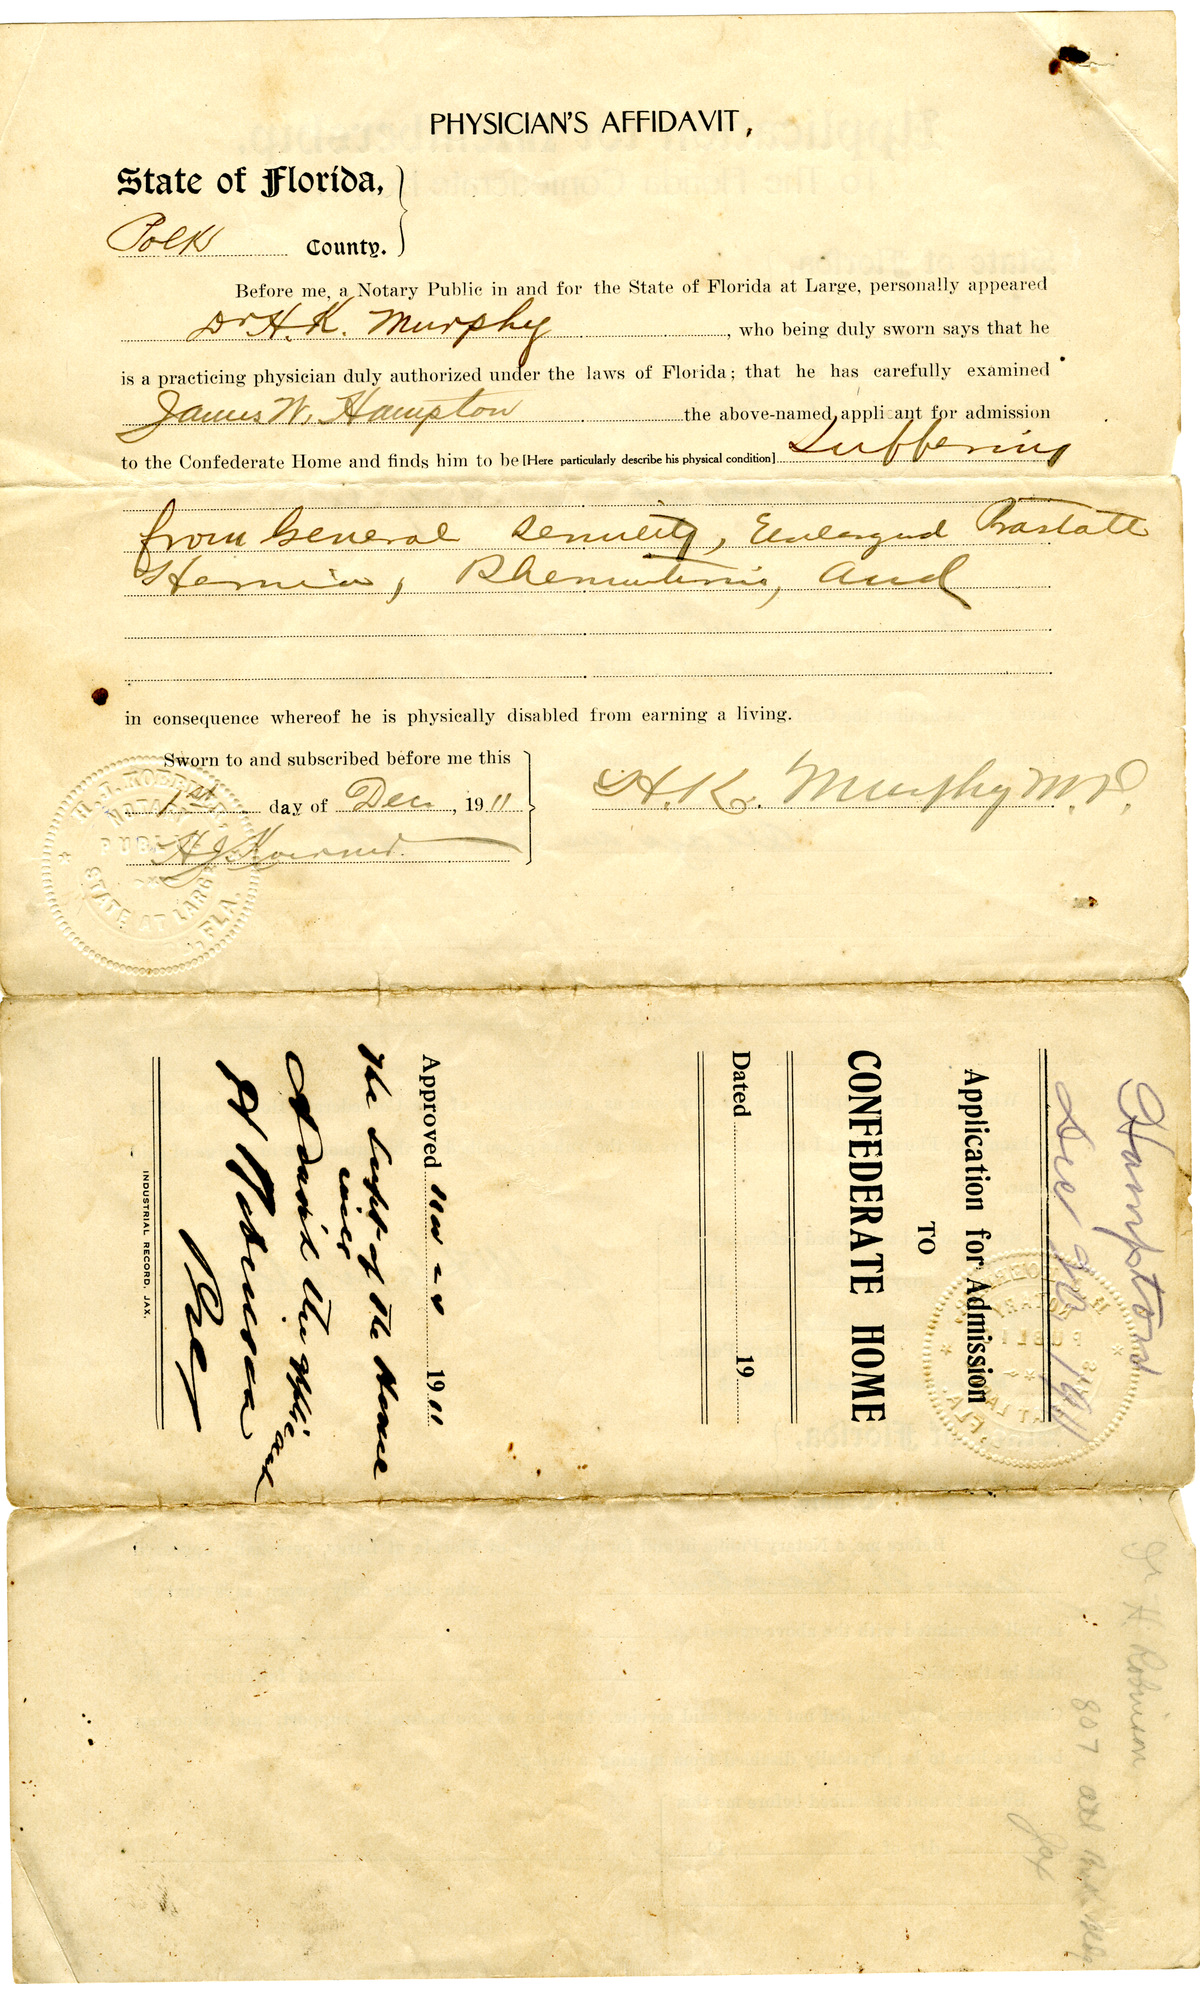 PHYSICIAN'S AFFIDAVIT,
State of Florida,
Polk County.
Before me, a Notary Public in and for the State of Florida at Large, personally appeared
Dr H. K. Murphy, who being duly sworn says that he
is a practicing physician duly authorized under the laws of Florida; that he has carefully examined
James W. Hampton the above-named applicant for admission
to the Confederate Home and finds him to be [Here particularly describe his physical condition] Suffering
from General Senility, Enlarged Prostate
Hernia, Rheumatism, and
in consequence whereof he is physically disabled from earning a living.
Sworn to and subscribed before me this
1st day of Dec, 1911
H. K. Murphy M.D.
NOTARY
PUBLIC
STATE AT LARGE
FLA.
Hampton
Dec 1911
Application for Admission
TO
CONFEDERATE HOME
Dated 19
Approved 1911
The Supt of the Home
will
Admit the applicant
H Robinson
Pres
INDUSTRIAL RECORD, JAX.
H Robinson
807
Jax